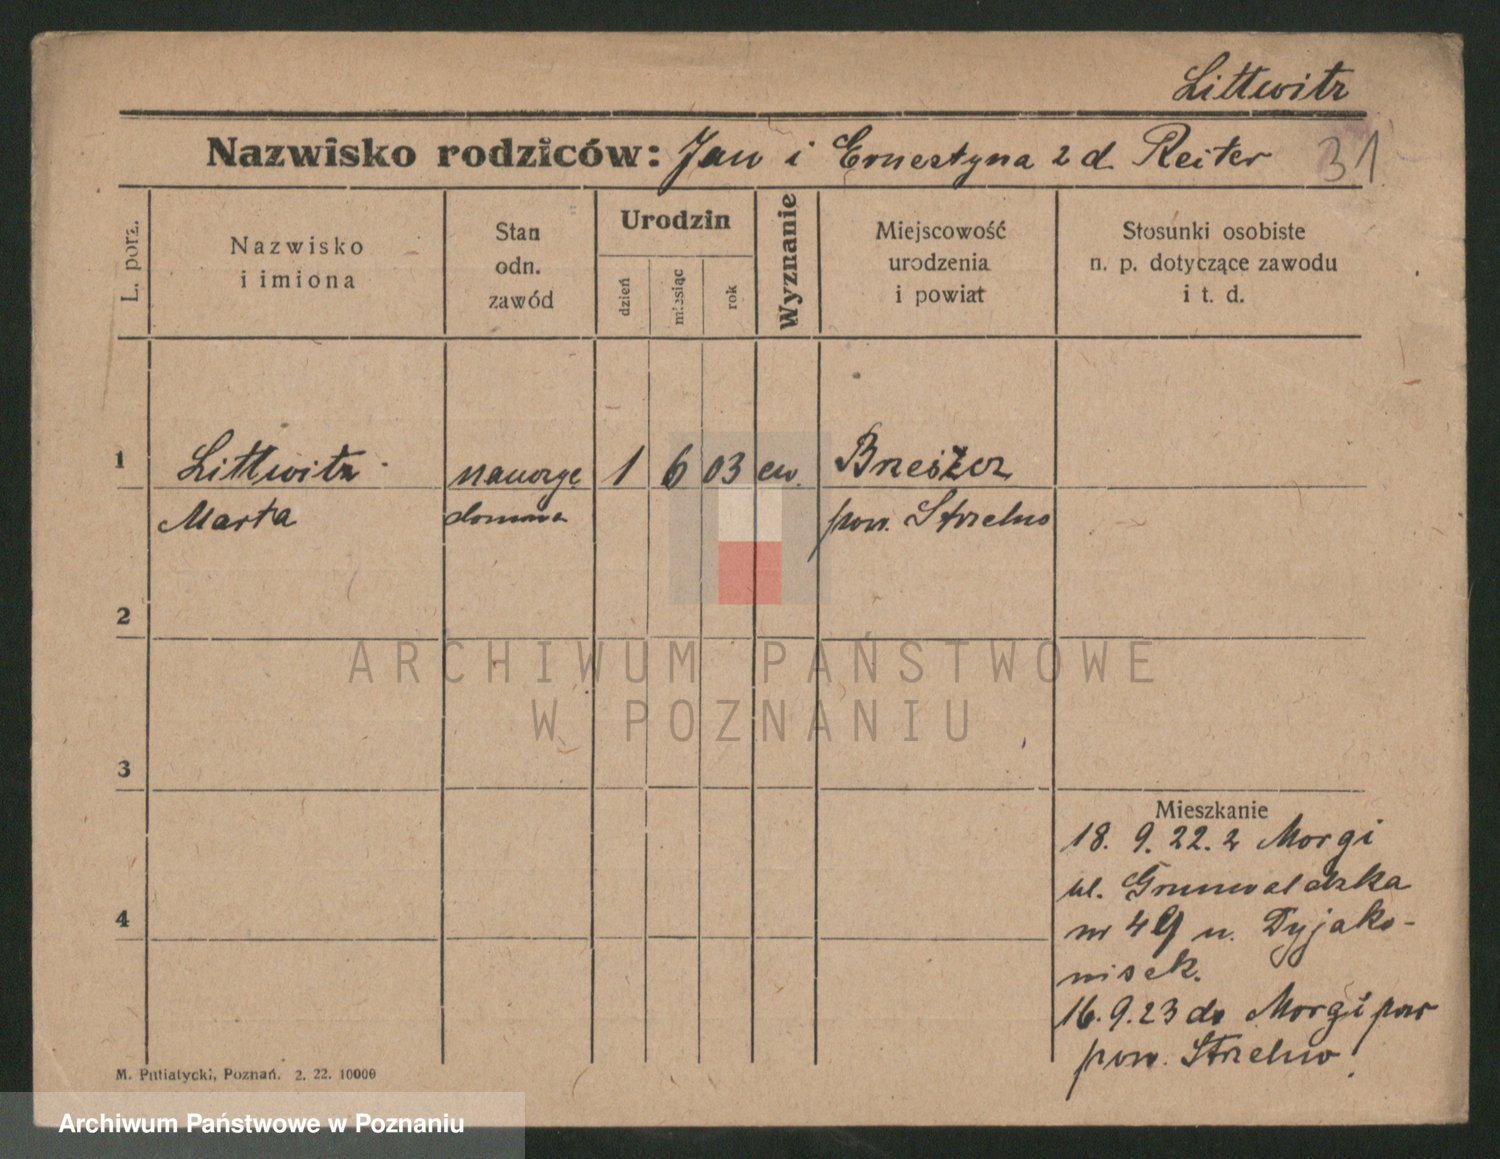 Littwitz
Nazwisko rodziców: Jan i Ernestyna z d. Reiter 31
L. porz.
Nazwisko
i imiona
Stan
odn.
zawód
Urodzin
dzień
miesiąc
rok
Wyznanie
Miejscowość
urodzenia
i powiat
Stosunki osobiste
n. p. dotyczące zawodu
i t. d.
1 Littwitz 1 6 03 ew.
Marta domowa pow. Strzelno
2
ARCHIWUM PAŃSTWOWE
W POZNANIU
3
Mieszkanie
18. 9. 22. z Morgi
ul. Grunwaldzka
4 nr 49 u. Dyjako-
nisek.
16. 9. 23 do Morgi pow
pow. Strzelno
M. Putiatycki, Poznań. 2. 22. 10000
Archiwum Państwowe w Poznaniu